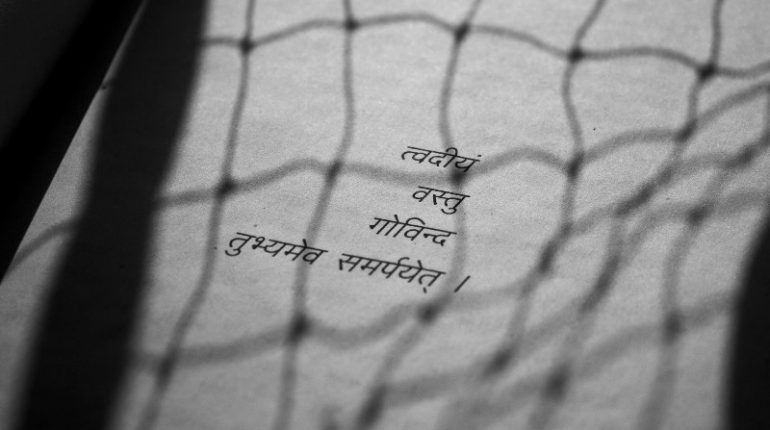 त्वदीयं
वस्तु
गोविन्द
तुंभ्यमेव समर्पयेत् ।